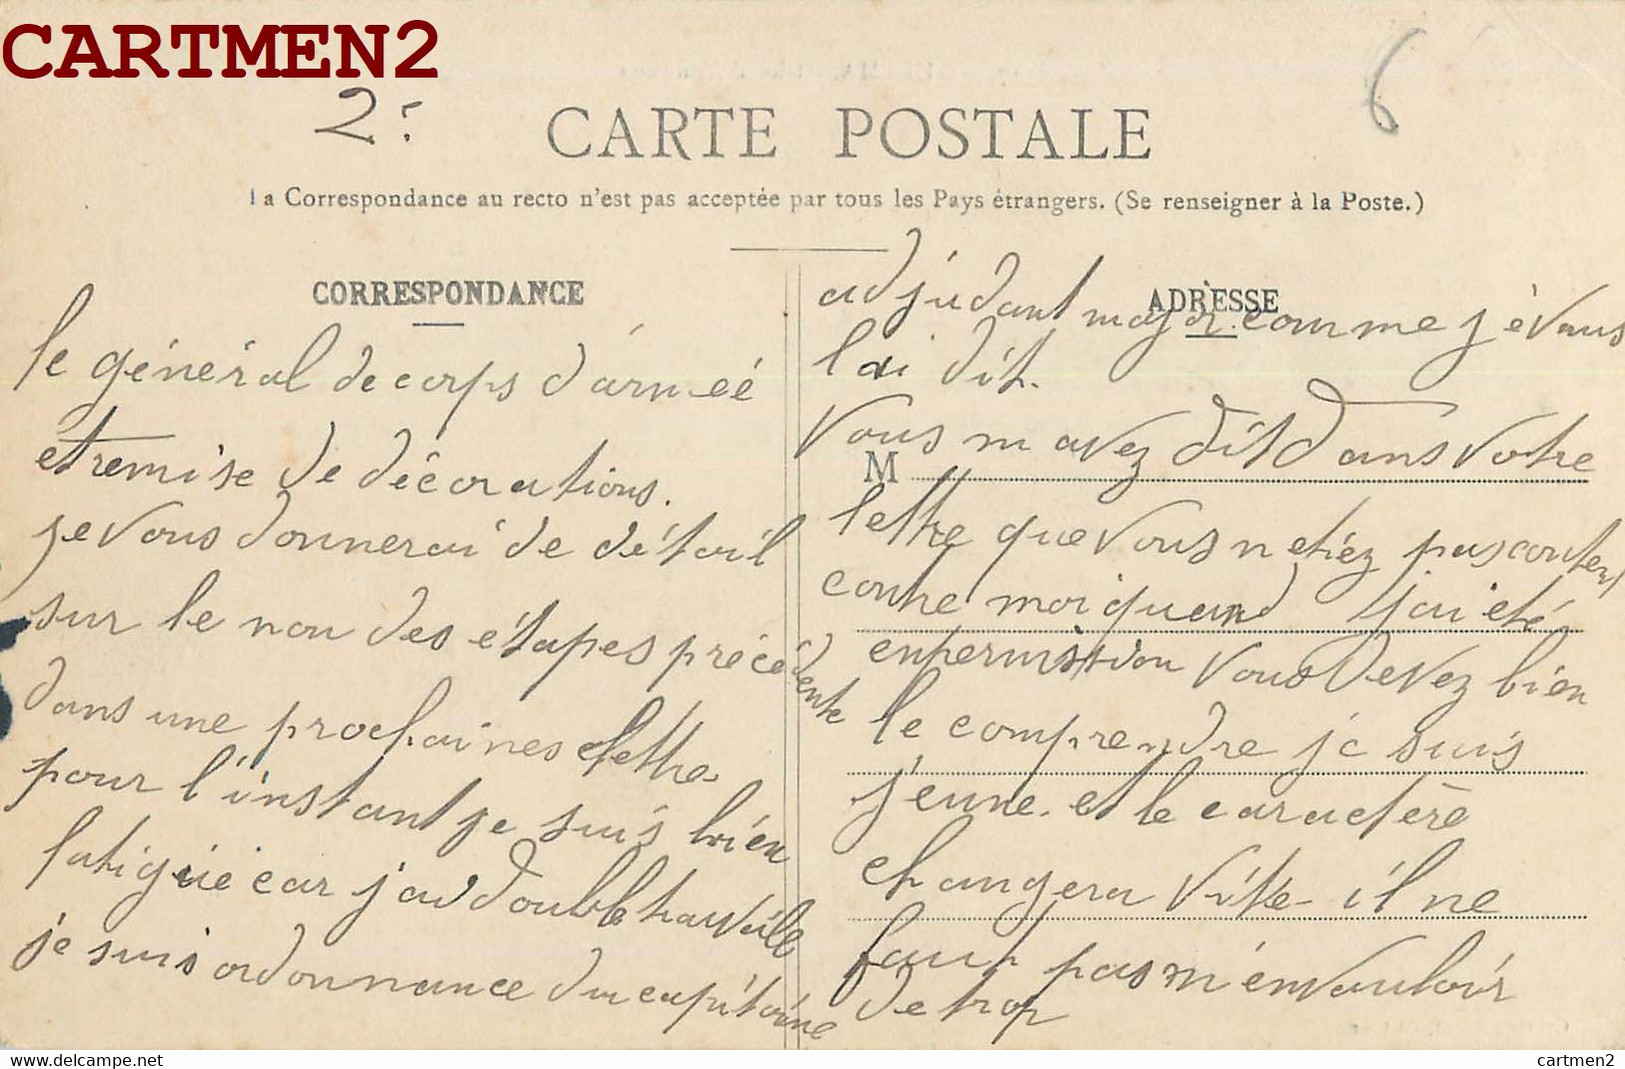 CARTMEN2
2:
6
CARTE POSTALE
La Correspondance au recto n'est pas acceptée par tous les Pays étrangers. (Se renseigner à la Poste.)
CORRESPONDANCE
le général de corps d'armeé
et remise de décorations.
je vous donnerai de détail
sur le non des étapes précédente
dans une prochaines lettre
pour l'instant je suis bien
fatiguié car j'ai double travaille
je suis ordonnance du capitaine
ADRESSE
adjudant major. comme je vous
lai dit.
vous m avez dit dans votre
M
lettre que vous n etiéz pas contént
contre moi quand j'ai eté
en permission vous devez bien
le comprendre je suis
jeune. et le caractère
changera vite - il ne
faut pas m'en vouloir
de trop
cartmen2.delcampe.net
cartmen2